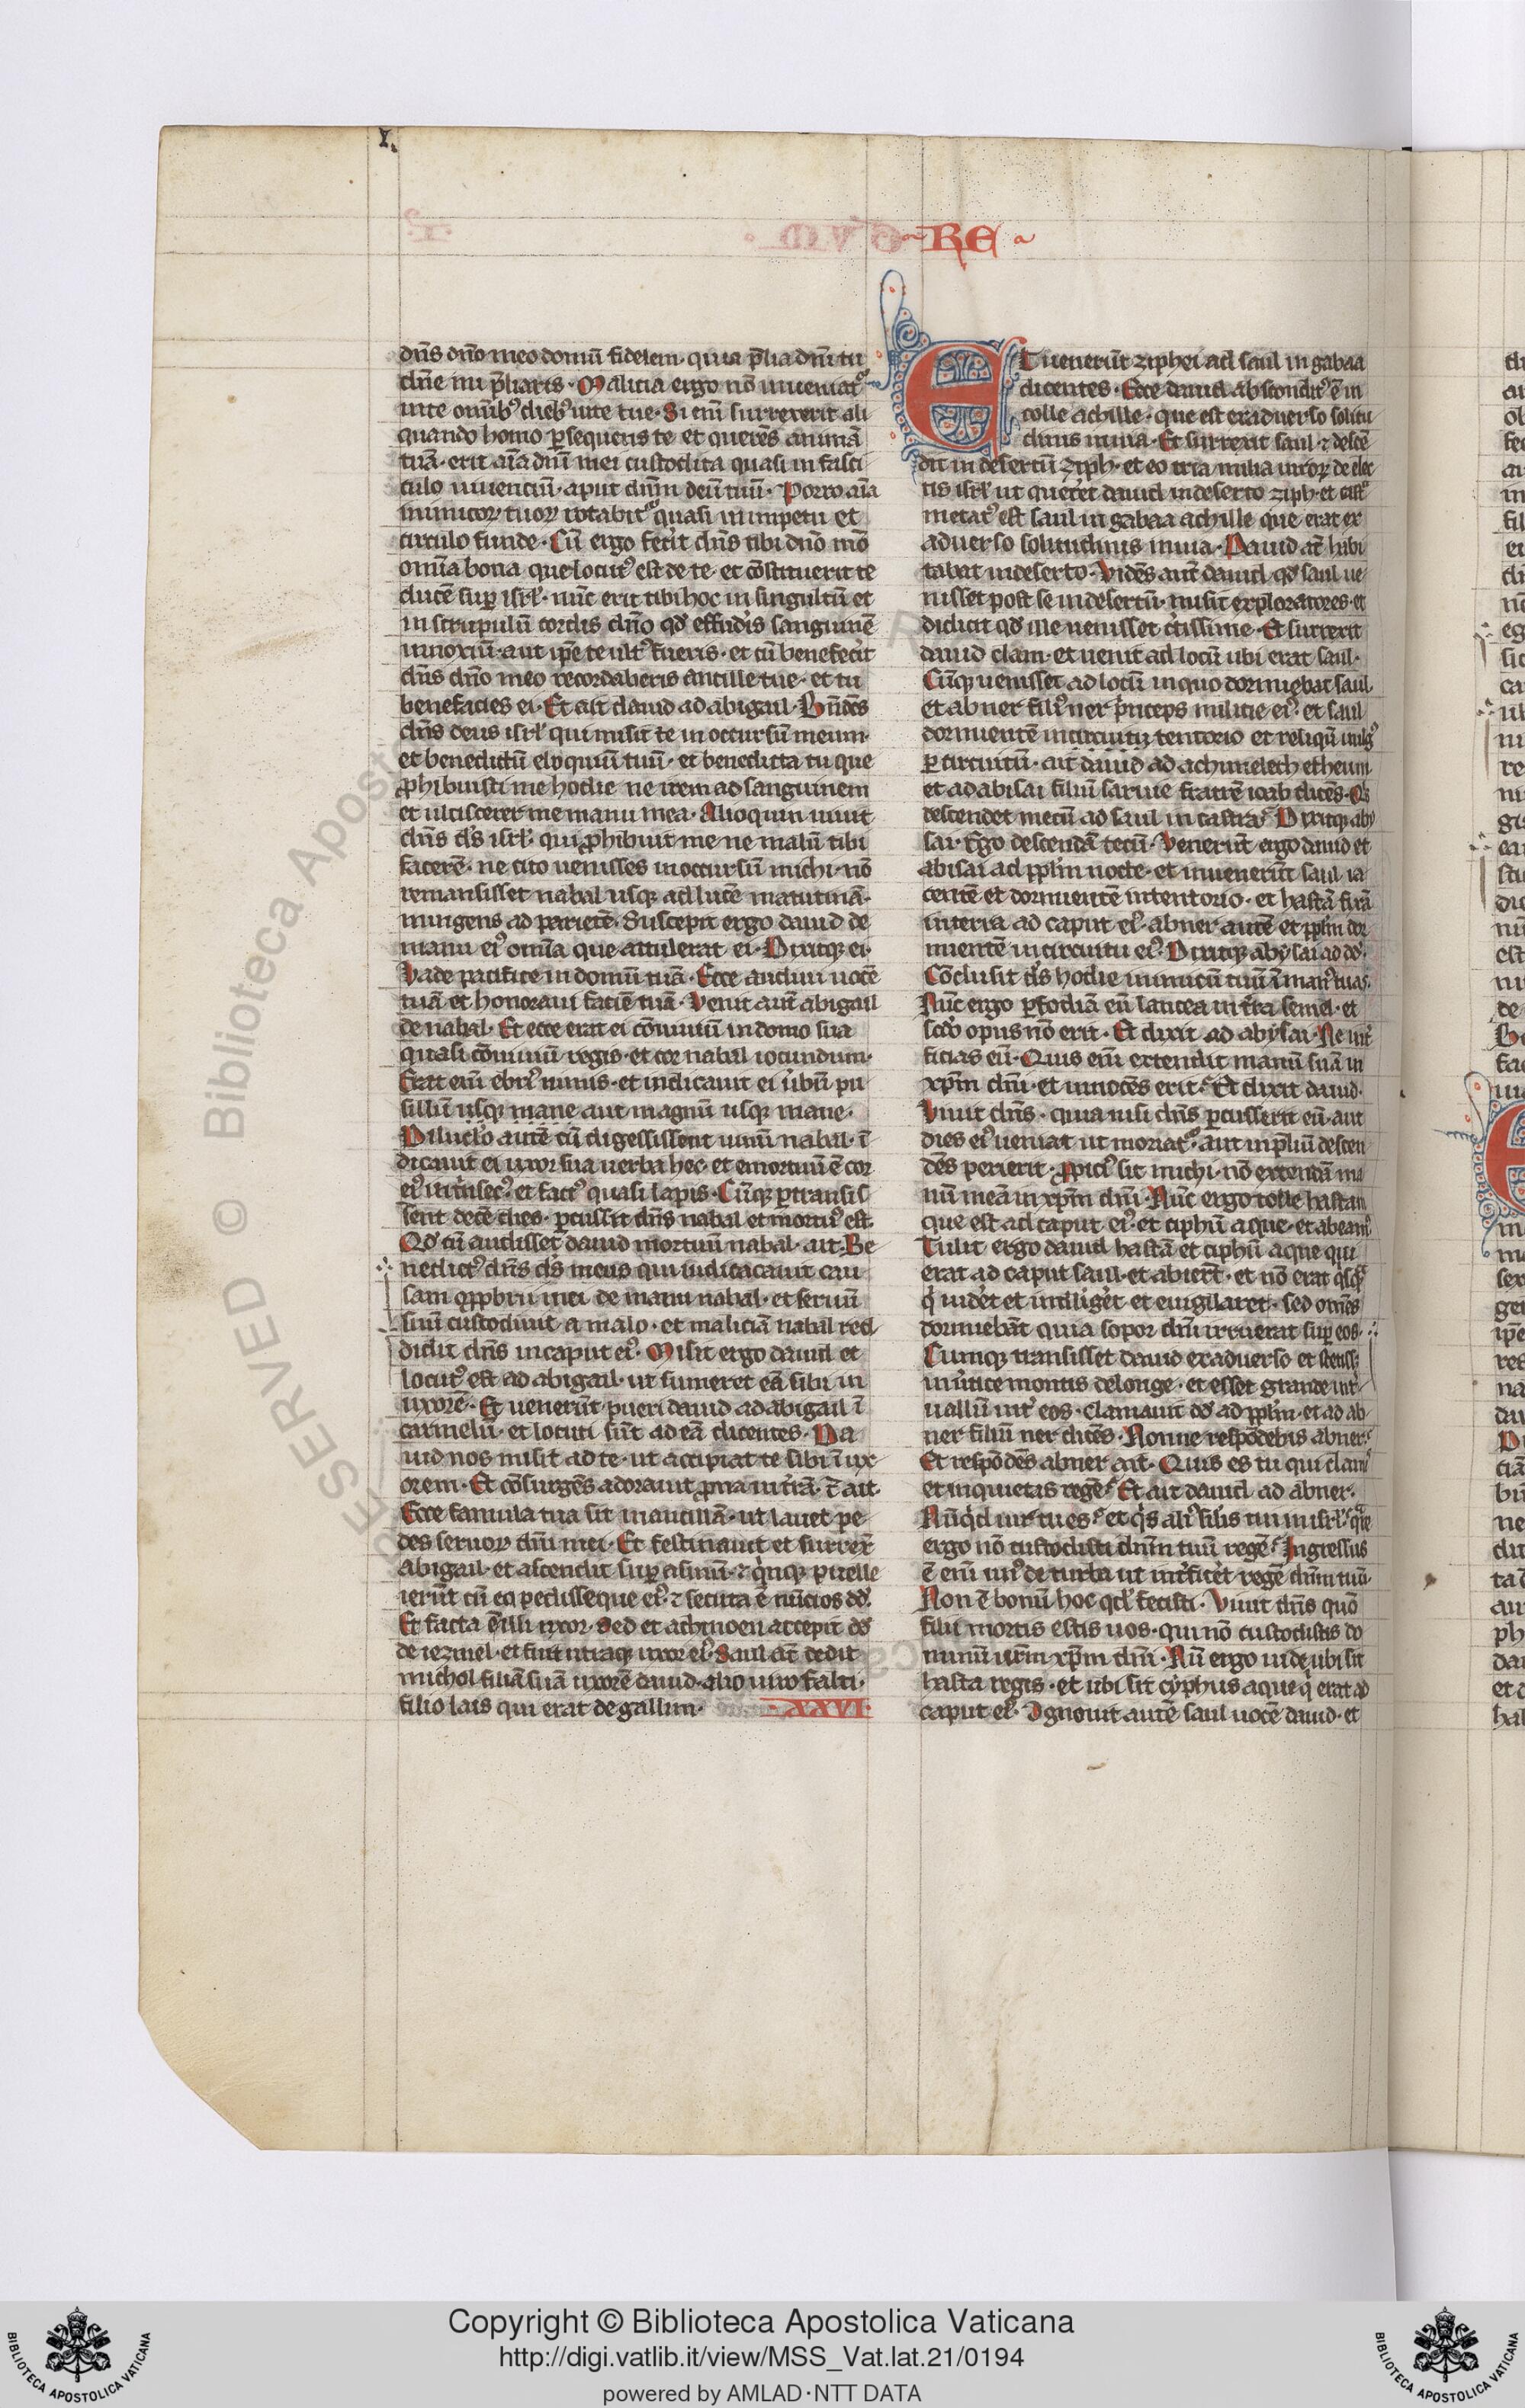 I.
RE
dn̄s dn̄o meo domū fidelem· quia p̄lia dn̄i tu
dn̄e mi p̄liaris· Malicia ergo nō inueniatᷣ
inte omībꝰ diebꝰ uite tue· Si eni᷒ surrexerit ali
quando homo ꝑsequens te et querēs animā
tuā· erit aīa dn̄i mei custodita quasi in fasci
culo uiuenciū· aput dn̄m deū tuū· Porro aīa
inimicoꝝ tuoꝝ rotabitᷣ quasi in impetu et
circulo funde· Cū ergo fecit dn̄s tibi dn̄o mō
omīa bona que locutꝰ est de te· et cōstituerit te
ducē suꝑ isrl̓· nūc erit tibi hoc in singultū et
in scrupulū cordis dn̄o qd̓ effudis sanguinē
innoxiū· aut ip̄e te ultꝰ fueris· et cū benefecit
dn̄s dn̄o meo recordaberis ancille tue· et tu
benefacies ei· Et ait dauid ad abigail· Bn̄dc̄s
dn̄s deus isrl̓ qui misit te in occursū meum·
et benedictū eloquiū tuū· et benedicta tu que
ꝓhibuisti me hodie ne irem ad sanguinem
et ulciscerer me manu mea· Alioquin uiuit
dn̄s ds̄ isrl̓· qui ꝓhibuit me ne malū tibi
facerē· ne cito uenisses in occursū michi· nō
remansisset nabal usqꝫ ad lucē matutinā·
mingens ad parietē· Suscepit ergo dauid de
manu eiꝰ omīa que attulerat ei· Dixitqꝫ ei·
Vade pacifice in domū tuā· Ecce audiui uocē
tuā et honoraui faciē tuā· Venit aut̄ abigail
de nabal· Et ecce erat ei cōuiuiū in domo sua
quasi cōuiuiū regis· et cor nabal iocundum·
Erat eni᷒ ebriꝰ nimis· et indicauit ei ūbū pu
sillū usqꝫ mane aut magnū usqꝫ mane·
Diluclo̓ autē cū digessissent uinū nabal· ī
dicauit ei uxor sua uerba hec· et emortuū ē cor
eiꝰ itrinsecꝰ· et factꝰ quasi lapis· Cūqꝫ ꝑtransis
sent decē dies· ꝑcussit dn̄s nabal et mortuꝰ est·
Qd̓ cū audisset dauid mortuū nabal· ait· Be
nedictꝰ dn̄s ds̄ meus qui iudicacauit cau
sam oꝑꝑbrii mei de manu nabal· et seruū
suū custodiuit a malo· et maliciā nabal red
didit dn̄s in caput eiꝰ· Misit ergo dauid et
locutꝰ est ad abigail· ut sumeret eā sibi in
uxorē· Et uenerūt pueri dauid ad abigail ī
carmelū· et locuti sūt ad eā dicentes· Da
uid nos misit ad te· ut accipiat te sibi ī ux
orem· Et cōsurgēs adorauit ꝓna in trā· ⁊ ait·
Ecce famula tua sit in ancillā· ut lauet pe
des seruoꝝ dn̄i mei· Et festinauit et surrex̄
abigail· et ascendit suꝑ asinū· ⁊ qinqꝫ puelle
ierūt cū ea pedisseque eiꝰ· ⁊ secuta ē nūcios dd̓·
Et facta ē illi uxor· Sed et achinoen accepit dd̓
de iezrael· et fuit utraqꝫ uxor eiꝰ· Saul at̄ dedit
michol filiā suā uxorē dauid· alio uiro falti·
filio lais qui erat de gallim· XXVI·
ET uenerūt ziphei ad saul in gabaa
dicentes· Ecce dauid abscondit̓ ē in
colle achille· que est exaduerso solitu
dinis inuia· Et surrexit saul· ⁊ descē
dit in desertū ziph· et eo tria milia uiroꝝ de elec
tis isrl̓ ut quēret dauid in deserto ziph· et castᷣ
metatꝰ est saul in gabaa achille que erat ex
aduerso solitudinis inuia· Dauid at̄ habi
tabat indeserto· Vidēs aut̄ dauid qd̓ saul ue
nisset post se in desertū· misit exploratores· et
didicit qd̓ ille uenisset c̄tissime· Et surrexit
dauid clam· et uenit ad locū ubi erat saul·
Cūqꝫ uenisset ad locū in quo dormiebat saul·
et abner filiꝰ ner p̄nceps milicie eiꝰ· et saul
dormientē in circuitu tentorio et reliqū uulgꝰ
ꝑ circuitū· ait dauid ad achimelech etheum
et ad abisai filiū saruie fratrē ioab dicēs· Qis
descendet mecū ad saul in castra· Dixitqꝫ aby
sai· Ego descendā tecū· Venerūt ergo dauid et
abisai ad ppl̓m nocte· et inuenerūt saul ia
centē et dormientē in tentorio· et hastā fixā
interra ad caput eiꝰ· abner autē et ppl̓m dor
mientē in circuitu eiꝰ· Dixitqꝫ abysai ad dd̓·
Cōclusit ds̄ hodie inimicū tuū ī manꝰ tuas·
Nūc ergo ꝑfodiā eū lancea in t̄ra semel· et
scd̓o opus nō erit· Et dixit ad abysai· Ne int̓
ficias eū· Quis eni᷒ extendit manū suā in
xp̄m dn̄i· et innocēs erit· Et dixit dauid·
Viuit dn̄s· quia nisi dn̄s ꝑcusserit eū· aut
dies eiꝰ ueniat ut moriatᷣ· aut in p̄liū descen
dēs perierit· ꝓpiciꝰ sit michi· nō extendā ma
nū meā in xp̄m dn̄i· Nūc ergo tolle hastam
que est ad caput eiꝰ· et ciphū aque· et abeamꝰ
Tulit ergo dauid hastā et ciphū aque qui
erat ad caput saul· et abiert̄· et nō erat qisqᷓ
q̓ uidet et intlliget et euigilaret· sed omēs
dormiebāt quia sopor dn̄i irruerat suꝑ eos·
Cumqꝫ transisset dauid exaduerso et stetiss;
in uertice montis delonge· et esset grande int̓
uallū int̓ eos· clamauit dd̓ ad ppl̓m· et ad ab
ner filiū ner dicēs· Nonne respōdebis abner·
Et respōdēs abner ait· Quis es tu qui clamꝰ
et inquietas regē· Et ait dauid ad abner·
Nūqid uir tu es· et qis aliꝰ sil̓is tui in isrl̓· qᷓre
ergo nō custodisti dn̄m tuū regē· Ingressus
ē eni᷒ unꝰ de turba ut int̓ficet regē dn̄m tuū·
Non ē bonū hoc qd̓ fecisti· Viuit dn̄s quō
filii mortis estis uos· qui nō custodistis do
minū ur̄m xp̄m dn̄i· Nū ergo uide ubi sit
hasta regis· et ubi sit cyphus aque q̓ erat ad
caput eiꝰ· Cgnouit autē saul uocē dauid· et
Copyright © Biblioteca Apostolica Vaticana
http://digi.vatlib.it/view/MSS_Vat.lat.21/0194
powered by AMLAD·NTT DATA
BIBLIOTECA APOSTOLICA VATICANA
BIBLIOTECA APOSTOLICA VATICANA